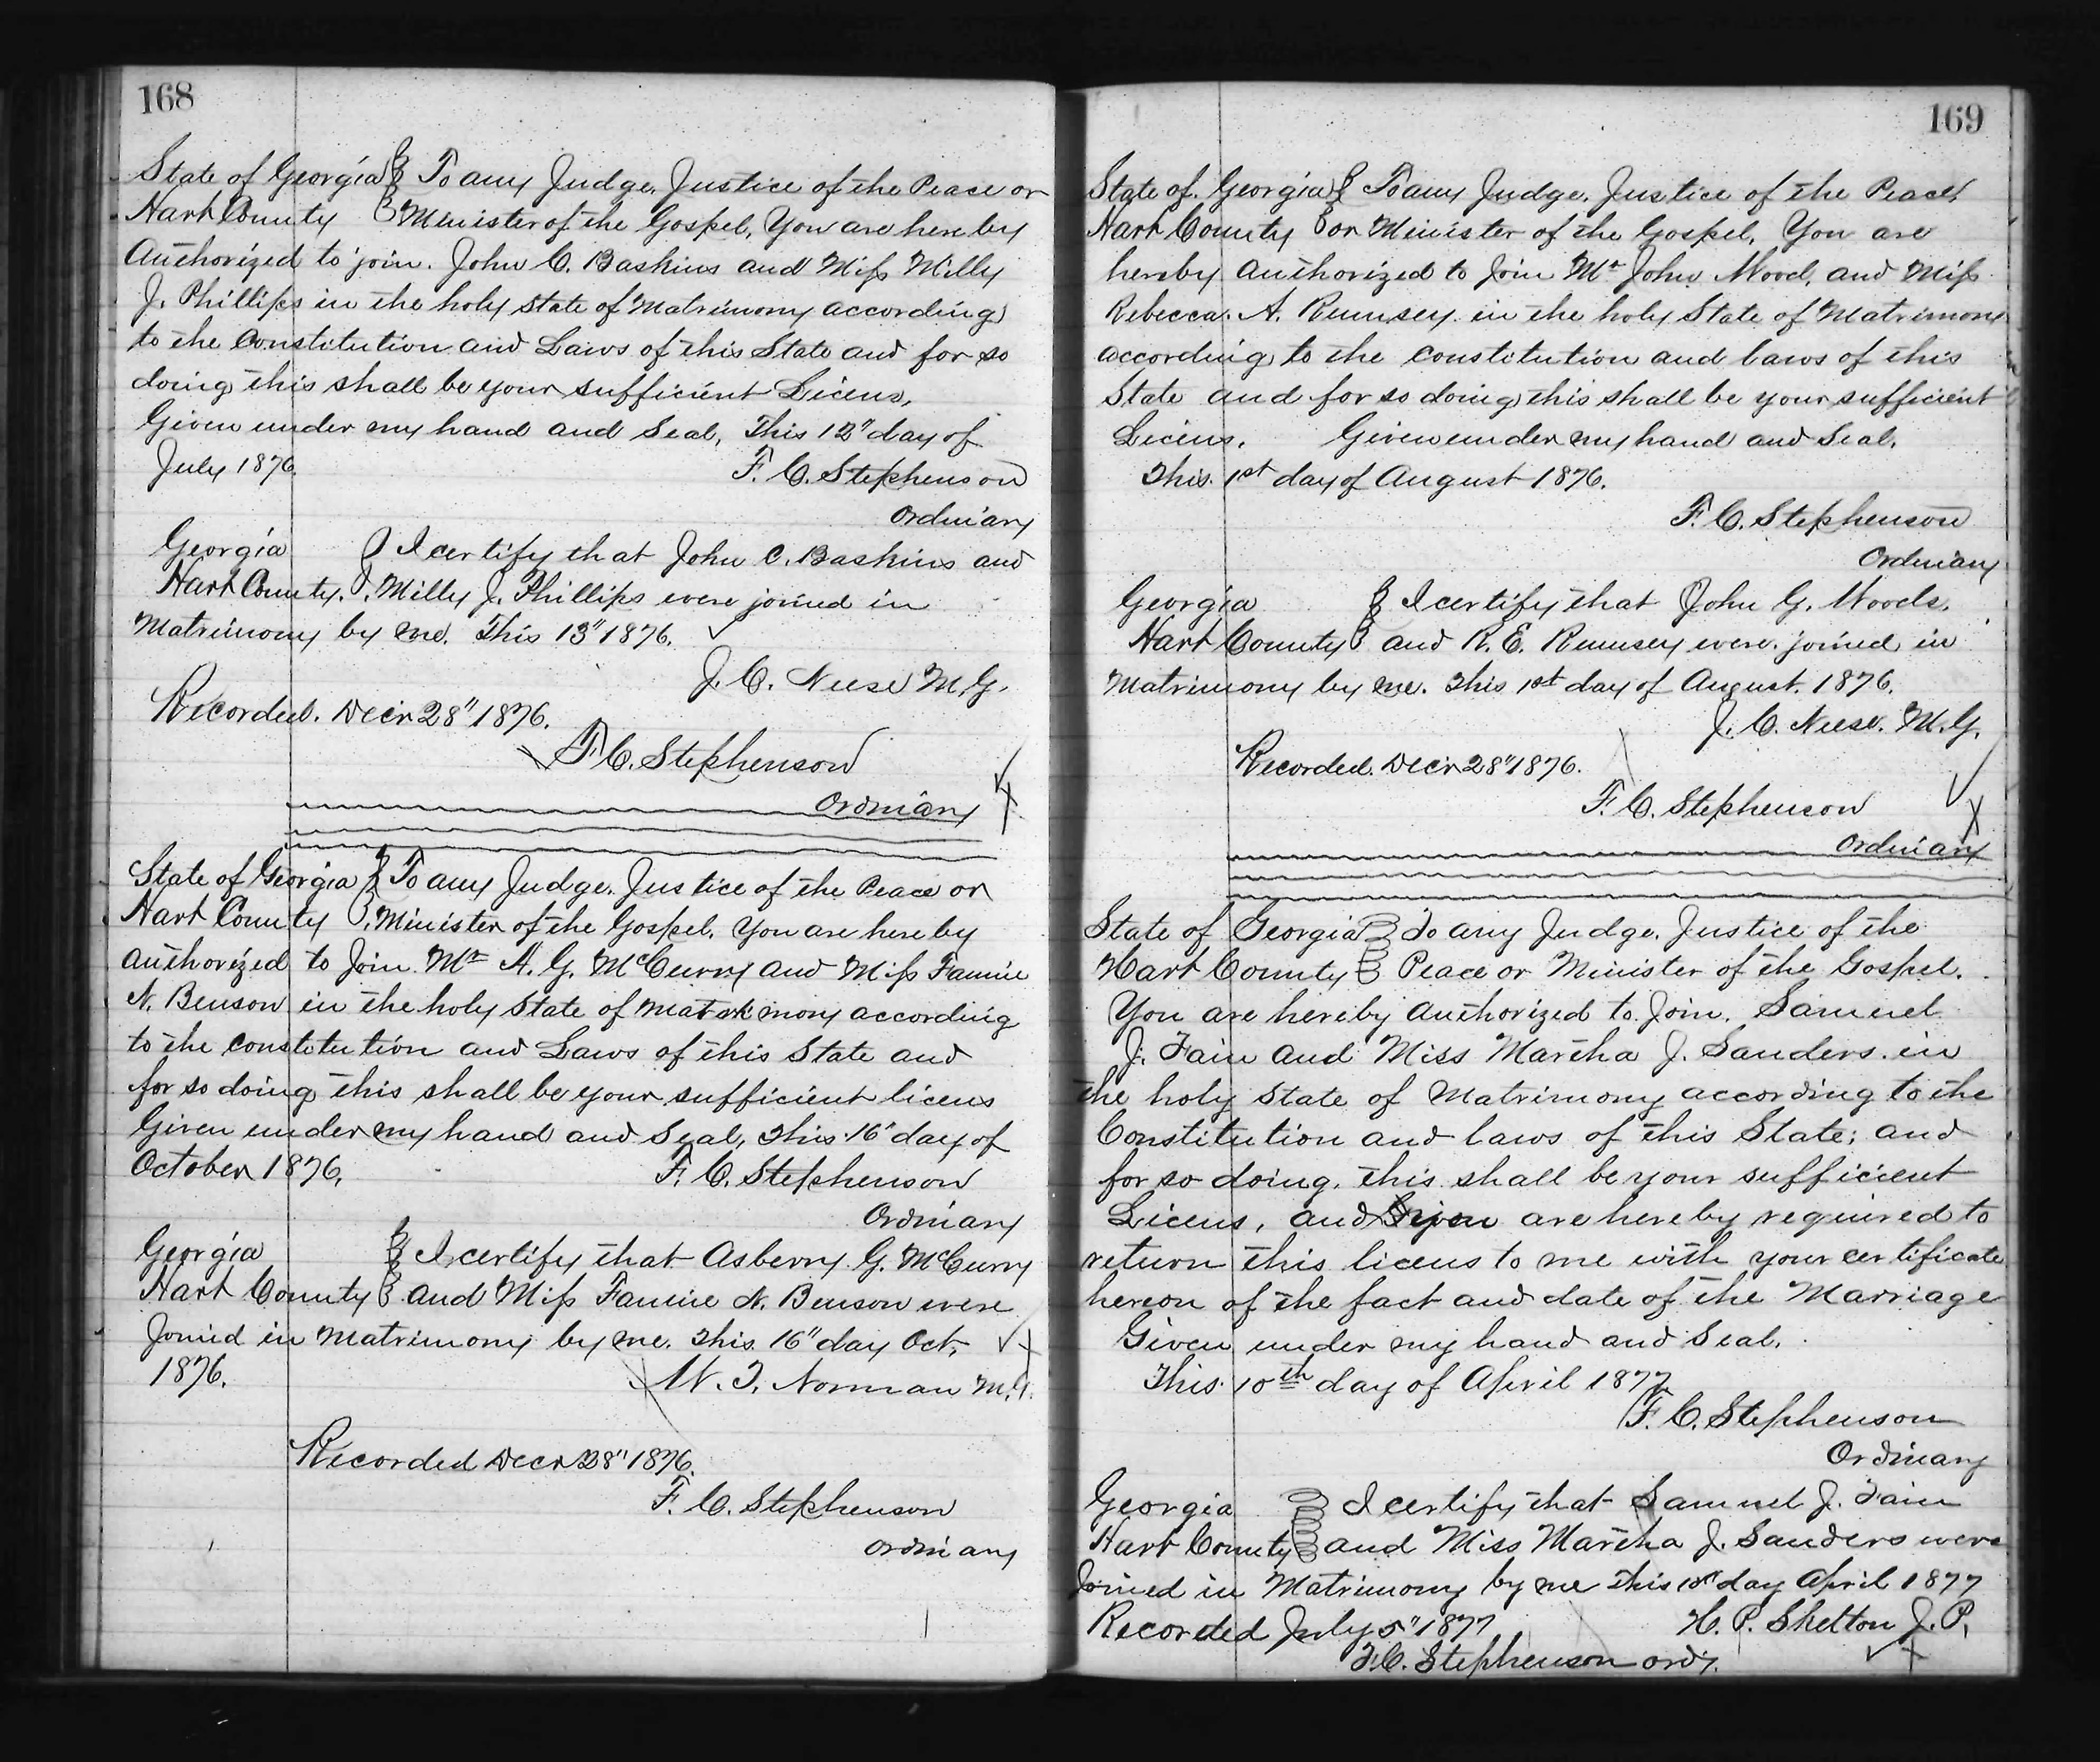 168
State of Georgia To any Judge, Justice of the Peace or
Hart County Minister of the Gospel, You are hereby
Authorized to join. John C. Baskins and Miss Milly
J. Phillips in the holy state of Matrimony according
to the Constitution and Laws of this State and for so
doing this shall be your sufficient Licens,
Given under my hand and Seal, This 12" day of
July 1876. F. C. Stephenson
Ordinary
Georgia I certify that John C. Baskins and
Hart County. Milly J. Phillips were joined in
Matrimony by me. This 13" 1876.
J. C. Neese M.G.
Recorded. Decr 28" 1876.
F. C. Stephenson
Ordinary
State of Georgia To any Judge. Justice of the Peace or
Hart County Minister of the Gospel. You are hereby
authorized to Join Mr A. G. McCurry and Miss Fannie
N. Benson in the holy State of Matrimony according
to the Constitution and Laws of this State and
for so doing this shall be your sufficient licens
Given under my hand and Seal, This 16" day of
October 1876. F. C. Stephenson
Ordinary
Georgia I certify that Asberry G. McCurry
Hart County and Miss Fannie N. Benson were
Joined in Matrimony by me. This 16" day Oct.
1876. W. T. Norman M.G.
Recorded Decr 28" 1876.
F. C. Stephenson
Ordinary
169
State of Georgia To any Judge. Justice of the Peace
Hart County or Minister of the Gospel, You are
hereby authorized to Join Mr John Wood, and Miss
Rebecca. A. Rumsey in the holy State of Matrimony
according to the constitution and laws of this
State and for so doing this shall be your sufficient
Licens. Given under my hand and Seal.
This 1st day of August 1876.
F. C. Stephenson
Ordinary
Georgia I certify that John G. Woods.
Hart County and R. E. Rumsey were joined in
Matrimony by me. This 1st day of August. 1876.
J. C. Neese. M.G.
Recorded. Decr 28" 1876.
F. C. Stephenson
Ordinary
State of Georgia To any Judge. Justice of the
Hart County Peace or Minister of the Gospel.
You are hereby authorized to Join. Samuel
J. Fain and Miss Martha J. Sanders in
the holy State of Matrimony according to the
Constitution and laws of this State; and
for so doing, this shall be your sufficient
Licens, and you are hereby required to
return this licens to me with your certificate
hereon of the fact and date of the Marriage
Given under my hand and Seal.
This 10th day of April 1877
F. C. Stephenson
Ordinary
Georgia I certify that Samuel J. Fain
Hart County and Miss Martha J. Sanders were
Joined in Matrimony by me this 10th day April 1877
Recorded July 5" 1877 H. P. Shelton J. P.
F. C. Stephenson ordy.